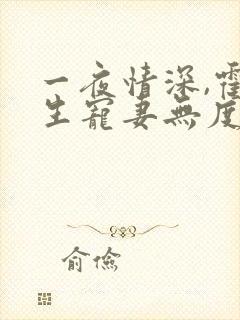 一夜情深,霍
生寵妻無度
俞儉